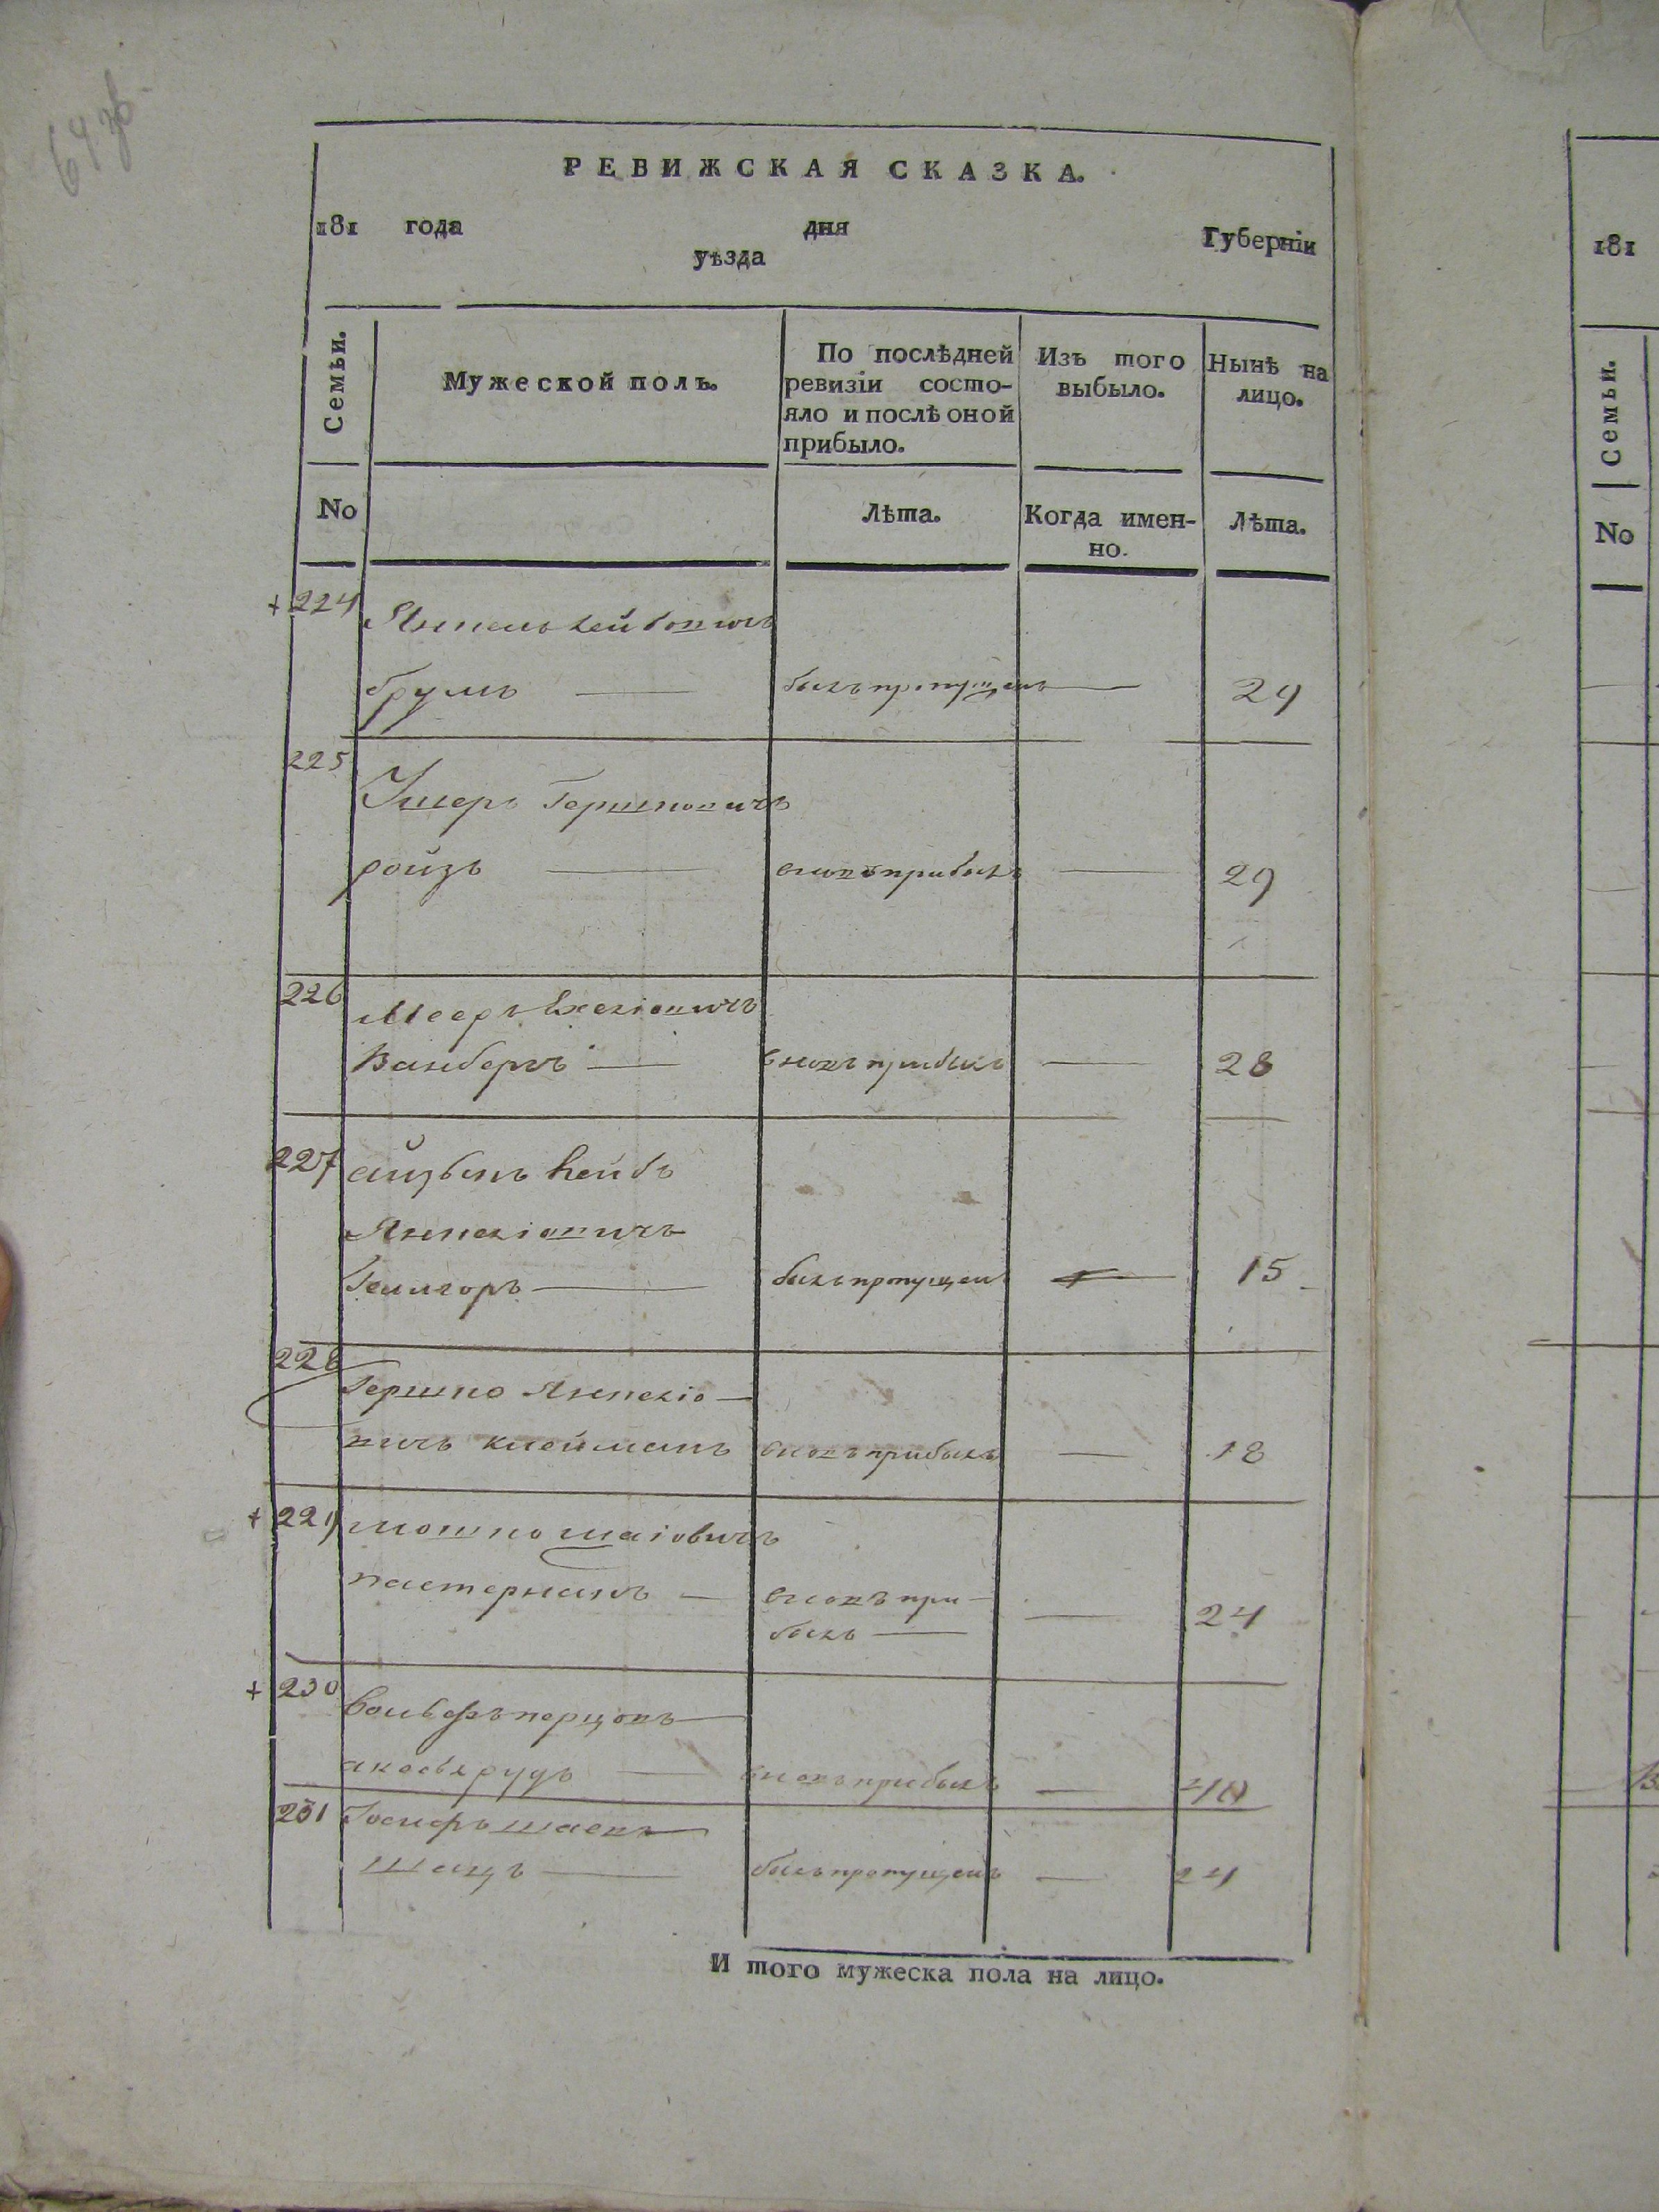 64 зв.
РЕВИЖСКАЯ СКАЗКА.
181 года дня Губерніи
уѣзда
Семьи.
Мужеской полъ.
По послѣдней ревизіи состояло и послѣ оной прибыло.
Изъ того выбыло.
Нынѣ на лицо.
No
Лѣта.
Когда именно.
Лѣта.
+ 224 Янкель Лейбовичъ
былъ пропущенъ — 29
225 Ушеръ Гершковичъ
ройзъ — вновь прибылъ — 29
226 Мееръ
Ванберъ — вновь прибылъ — 28
227 айзыкъ Лейбъ
Янкеліовичъ
былъ пропущенъ — 15
228 Гершко Янкеліо-
вичъ клейманъ вновь прибылъ — 18
+ 229 мошко шаіовичъ
пастернакъ — вновь при-
былъ — 24
+ 230 Вольфъ
вновь прибылъ —
231 Іосифъ
шацъ — былъ пропущенъ — 24
И того мужеска пола на лицо.
181
Семьи.
No